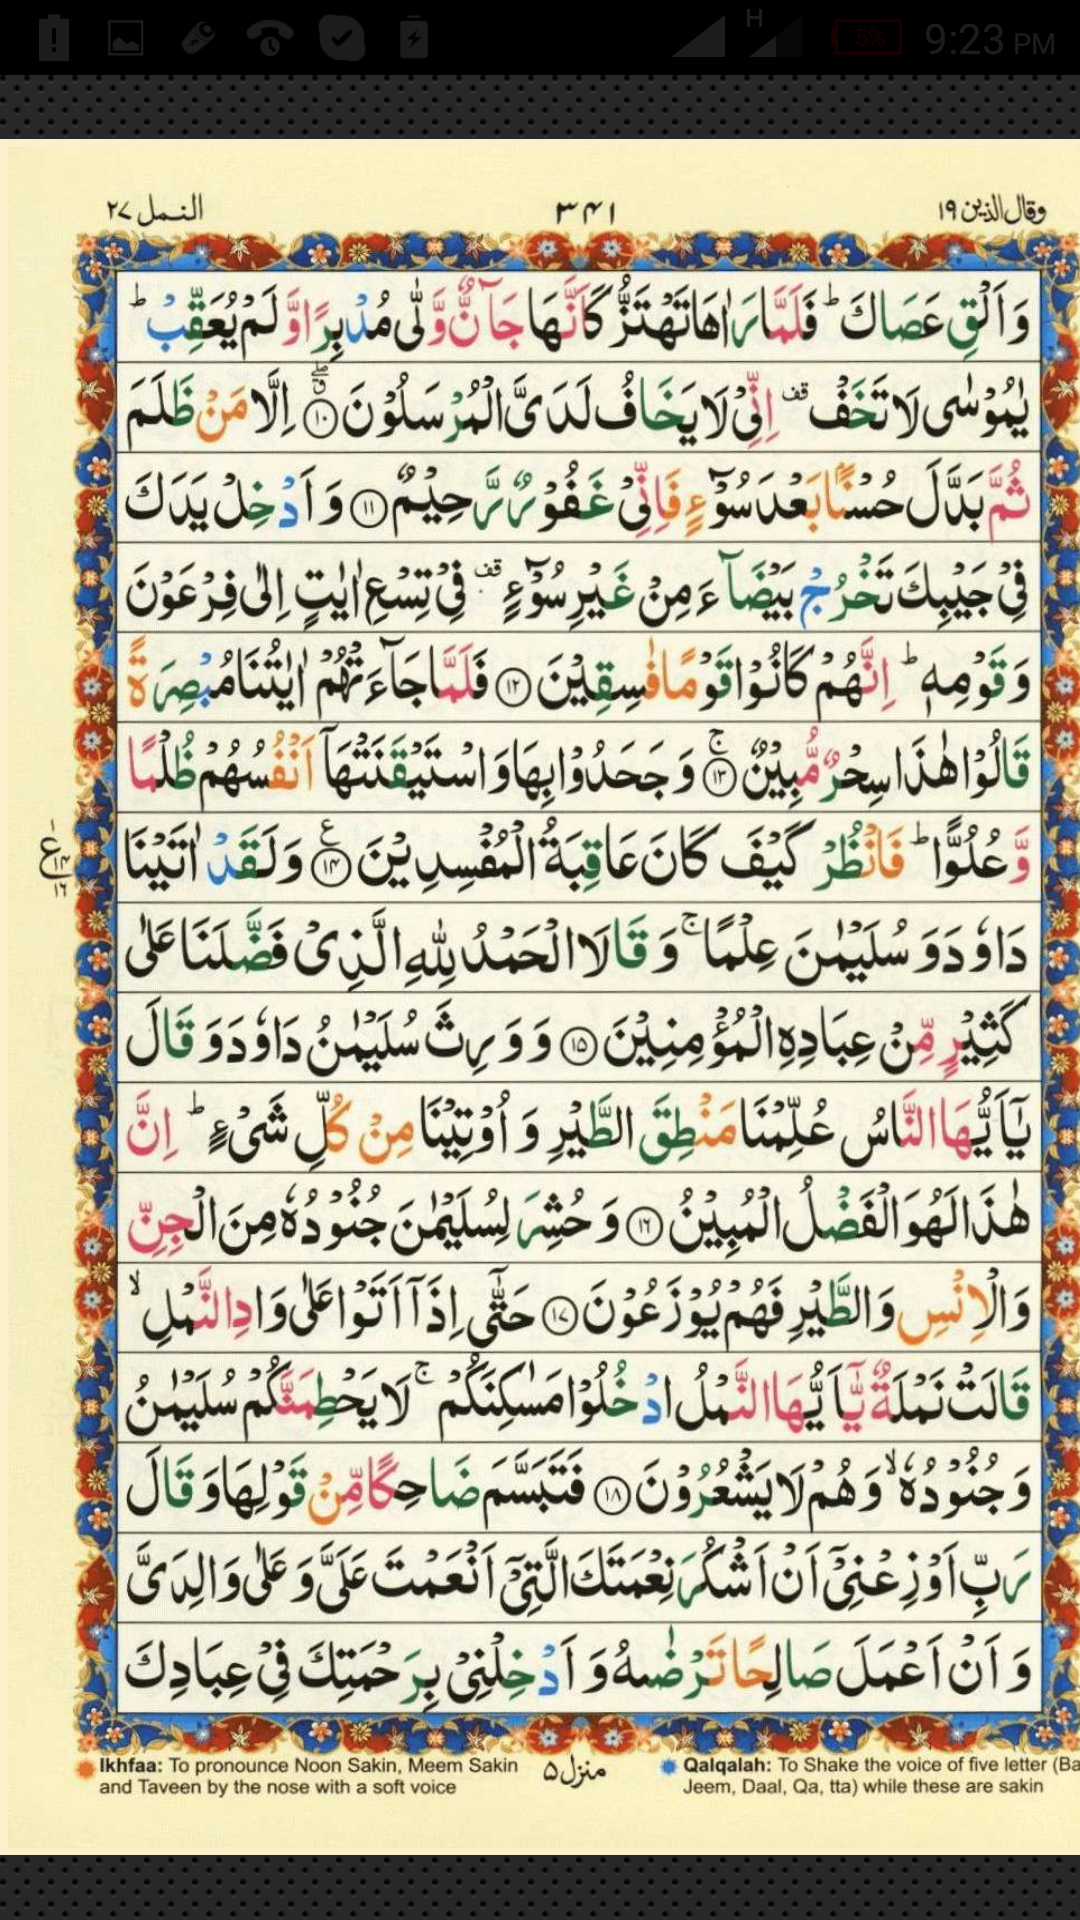 H
5%
9:23 PM
وقال الذين ۱۹
۳۴۱
النمل ۲۷
وَ اَلْقِ عَصَاكَ ؕ فَلَمَّا رَاٰهَا تَهْتَزُّ كَاَنَّهَا جَآنٌّ وَّلّٰى مُدْبِرًا وَّ لَمْ يُعَقِّبْ ؕ
يٰمُوْسٰى لَا تَخَفْ قف اِنِّيْ لَا يَخَافُ لَدَيَّ الْمُرْسَلُوْنَ ۱۰ اِلَّا مَنْ ظَلَمَ
ثُمَّ بَدَّلَ حُسْنًۢا بَعْدَ سُوْٓءٍ فَاِنِّيْ غَفُوْرٌ رَّحِيْمٌ ۱۱ وَ اَدْخِلْ يَدَكَ
فِيْ جَيْبِكَ تَخْرُجْ بَيْضَآءَ مِنْ غَيْرِ سُوْٓءٍ قف فِيْ تِسْعِ اٰيٰتٍ اِلٰى فِرْعَوْنَ
وَ قَوْمِهٖ ؕ اِنَّهُمْ كَانُوْا قَوْمًا فٰسِقِيْنَ ۱۲ فَلَمَّا جَآءَتْهُمْ اٰيٰتُنَا مُبْصِرَةً
قَالُوْا هٰذَا سِحْرٌ مُّبِيْنٌ ۱۳ ۚ وَ جَحَدُوْا بِهَا وَ اسْتَيْقَنَتْهَاۤ اَنْفُسُهُمْ ظُلْمًا
وَّ عُلُوًّا ؕ فَانْظُرْ كَيْفَ كَانَ عَاقِبَةُ الْمُفْسِدِيْنَ ۱۴ ع وَ لَقَدْ اٰتَيْنَا
۱ ع ۱۴ ۱۶
دَاوٗدَ وَ سُلَيْمٰنَ عِلْمًا ۚ وَ قَالَا الْحَمْدُ لِلّٰهِ الَّذِيْ فَضَّلَنَا عَلٰى
كَثِيْرٍ مِّنْ عِبَادِهِ الْمُؤْمِنِيْنَ ۱۵ وَ وَرِثَ سُلَيْمٰنُ دَاوٗدَ وَ قَالَ
يٰۤاَيُّهَا النَّاسُ عُلِّمْنَا مَنْطِقَ الطَّيْرِ وَ اُوْتِيْنَا مِنْ كُلِّ شَيْءٍ ؕ اِنَّ
هٰذَا لَهُوَ الْفَضْلُ الْمُبِيْنُ ۱۶ وَ حُشِرَ لِسُلَيْمٰنَ جُنُوْدُهٗ مِنَ الْجِنِّ
وَ الْاِنْسِ وَ الطَّيْرِ فَهُمْ يُوْزَعُوْنَ ۱۷ حَتّٰۤى اِذَاۤ اَتَوْا عَلٰى وَادِ النَّمْلِ ۙ
قَالَتْ نَمْلَةٌ يّٰۤاَيُّهَا النَّمْلُ ادْخُلُوْا مَسٰكِنَكُمْ ۚ لَا يَحْطِمَنَّكُمْ سُلَيْمٰنُ
وَ جُنُوْدُهٗ ۙ وَ هُمْ لَا يَشْعُرُوْنَ ۱۸ فَتَبَسَّمَ ضَاحِكًا مِّنْ قَوْلِهَا وَ قَالَ
رَبِّ اَوْزِعْنِيْۤ اَنْ اَشْكُرَ نِعْمَتَكَ الَّتِيْۤ اَنْعَمْتَ عَلَيَّ وَ عَلٰى وَالِدَيَّ
وَ اَنْ اَعْمَلَ صَالِحًا تَرْضٰىهُ وَ اَدْخِلْنِيْ بِرَحْمَتِكَ فِيْ عِبَادِكَ
Ikhfaa: To pronounce Noon Sakin, Meem Sakin
and Taveen by the nose with a soft voice
منزل ۵
Qalqalah: To Shake the voice of five letter (Ba
Jeem, Daal, Qa, tta) while these are sakin